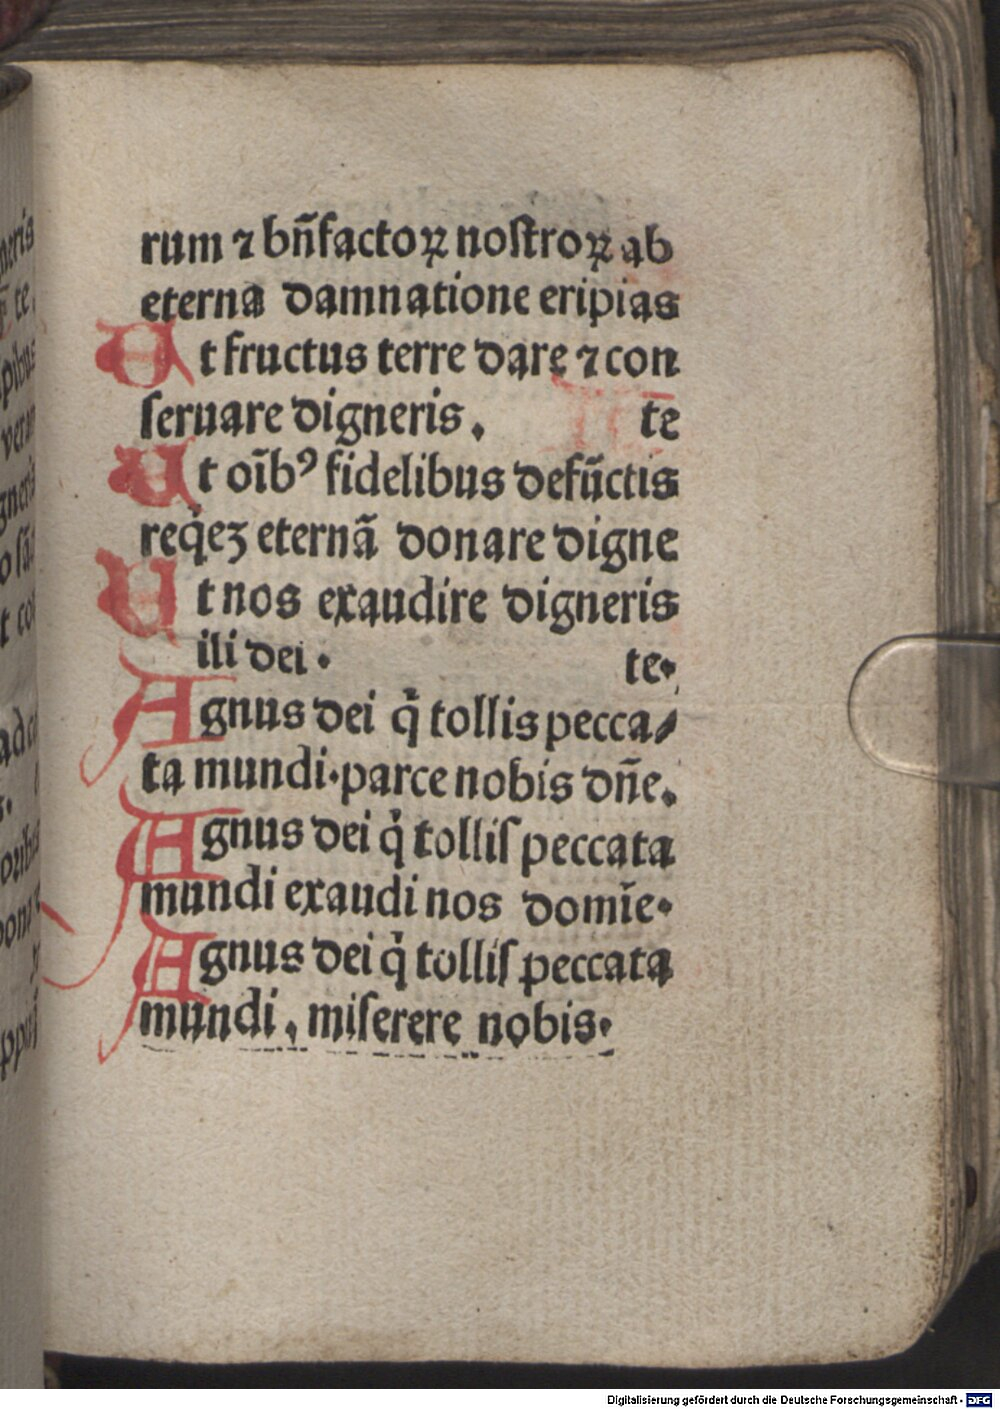 rum ⁊ bn̄factoꝝ nostroꝝ ab
eterna damnatione eripias
Ut fructus terre dare ⁊ con
seruare digneris. te
Ut oīb⁹ fidelibus defūctis
reqͥeꝫ eternā donare digne
Ut nos exaudire digneris
ili dei. te.
Agnus dei qͥ tollis pecca⸗
ta mundi·parce nobis dn̄e.
Agnus dei qͥ tolliſ peccata
mundi exaudi nos domīe·
Agnus dei qͥ tolliſ peccata
mundi, miſerere nobis·
neris
te
pibus
gneris
Digitalisierung gefördert durch die Deutsche Forschungsgemeinschaft - DFG